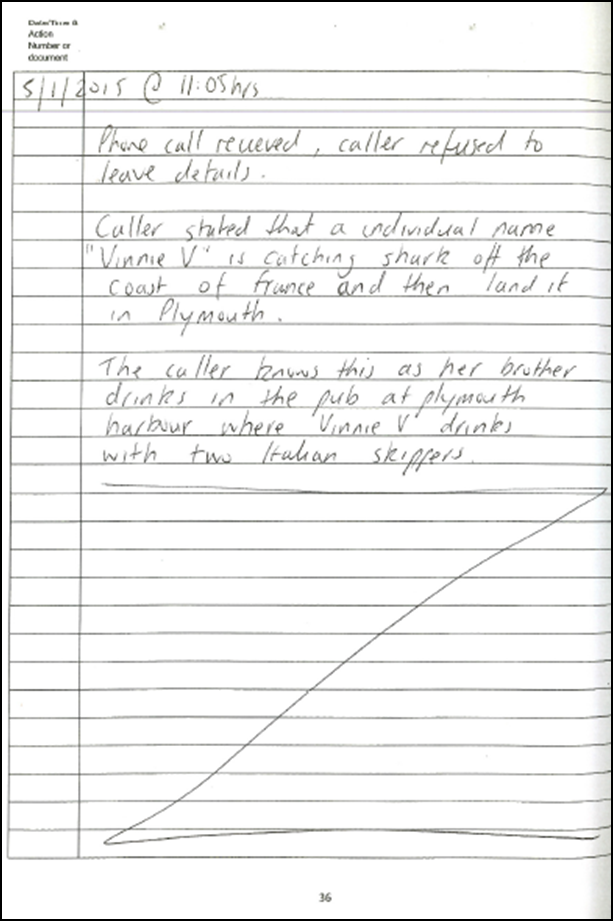 Date/Time &
Action
Number or
document
5/1/2015 @ 11:05hrs
Phone call recieved, caller refused to
leave details.
Caller stated that a individual name
"Vinnie V" is catching shark off the
coast of france and then land it
in Plymouth.
The caller knows this as her brother
drinks in the pub at plymouth
harbour where Vinnie V drinks
with two Italian skippers.
36